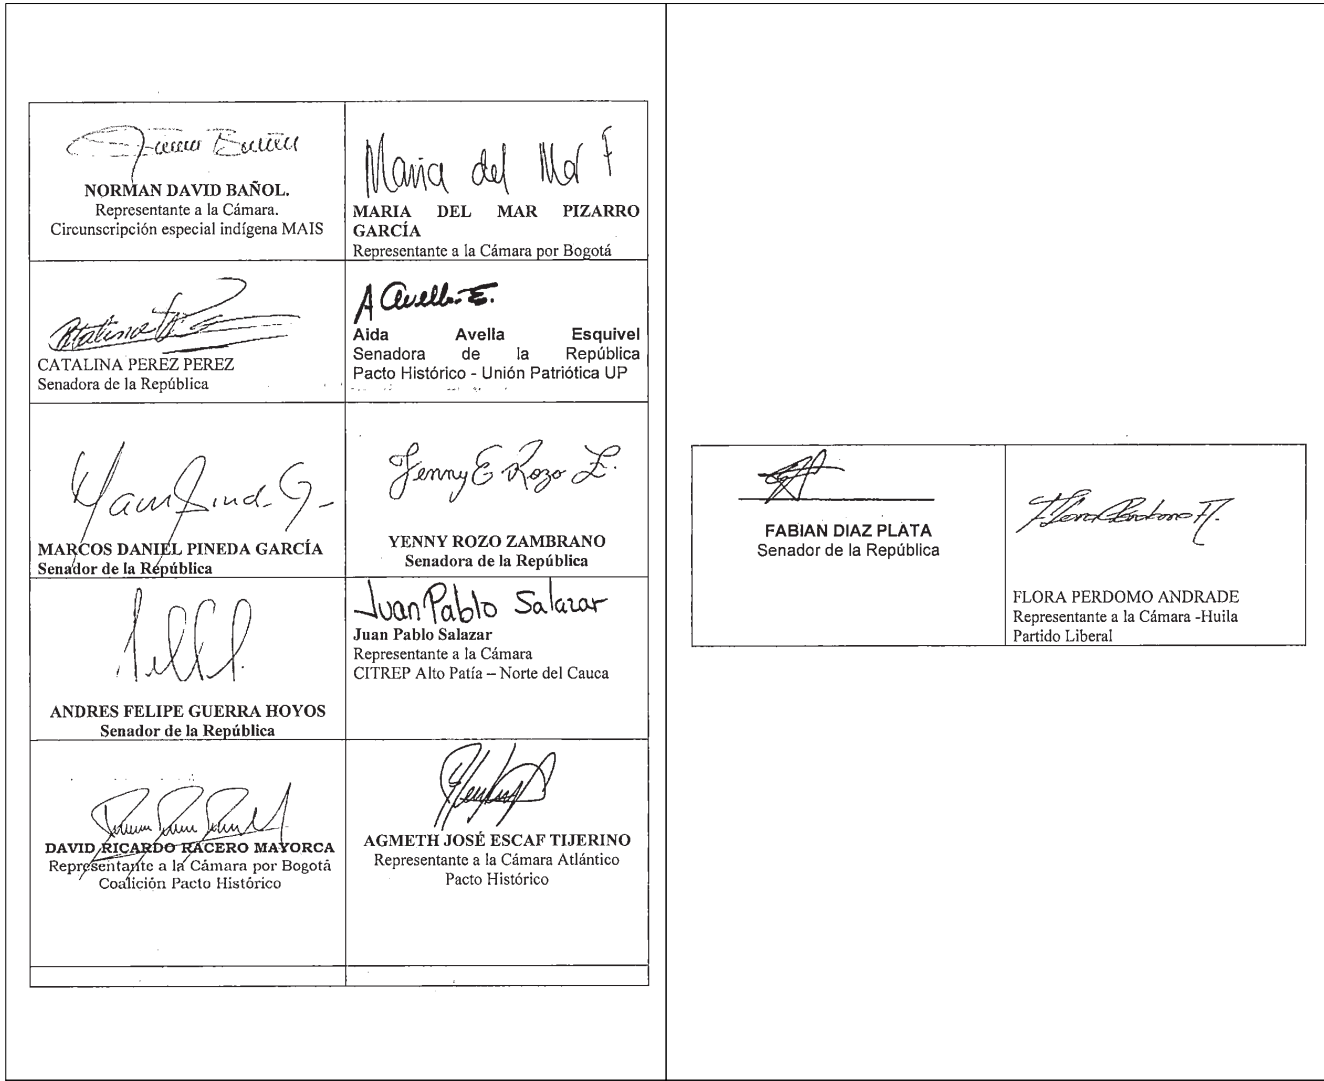 NORMAN DAVID BAÑOL.
Representante a la Cámara.
Circunscripción especial indígena MAIS
Maria del Mar P
MARIA DEL MAR PIZARRO
GARCÍA
Representante a la Cámara por Bogotá
Catalina
CATALINA PEREZ PEREZ
Senadora de la República
A Avella E.
Aida Avella Esquivel
Senadora de la República
Pacto Histórico - Unión Patriótica UP
MARCOS DANIEL PINEDA GARCÍA
Senador de la República
Yenny E Rozo Z.
YENNY ROZO ZAMBRANO
Senadora de la República
ANDRES FELIPE GUERRA HOYOS
Senador de la República
Juan Pablo Salazar
Juan Pablo Salazar
Representante a la Cámara
CITREP Alto Patía – Norte del Cauca
DAVID RICARDO RACERO MAYORCA
Representante a la Cámara por Bogotá
Coalición Pacto Histórico
AGMETH JOSÉ ESCAF TIJERINO
Representante a la Cámara Atlántico
Pacto Histórico
FABIAN DIAZ PLATA
Senador de la República
Flora Perdomo A.
FLORA PERDOMO ANDRADE
Representante a la Cámara -Huila
Partido Liberal